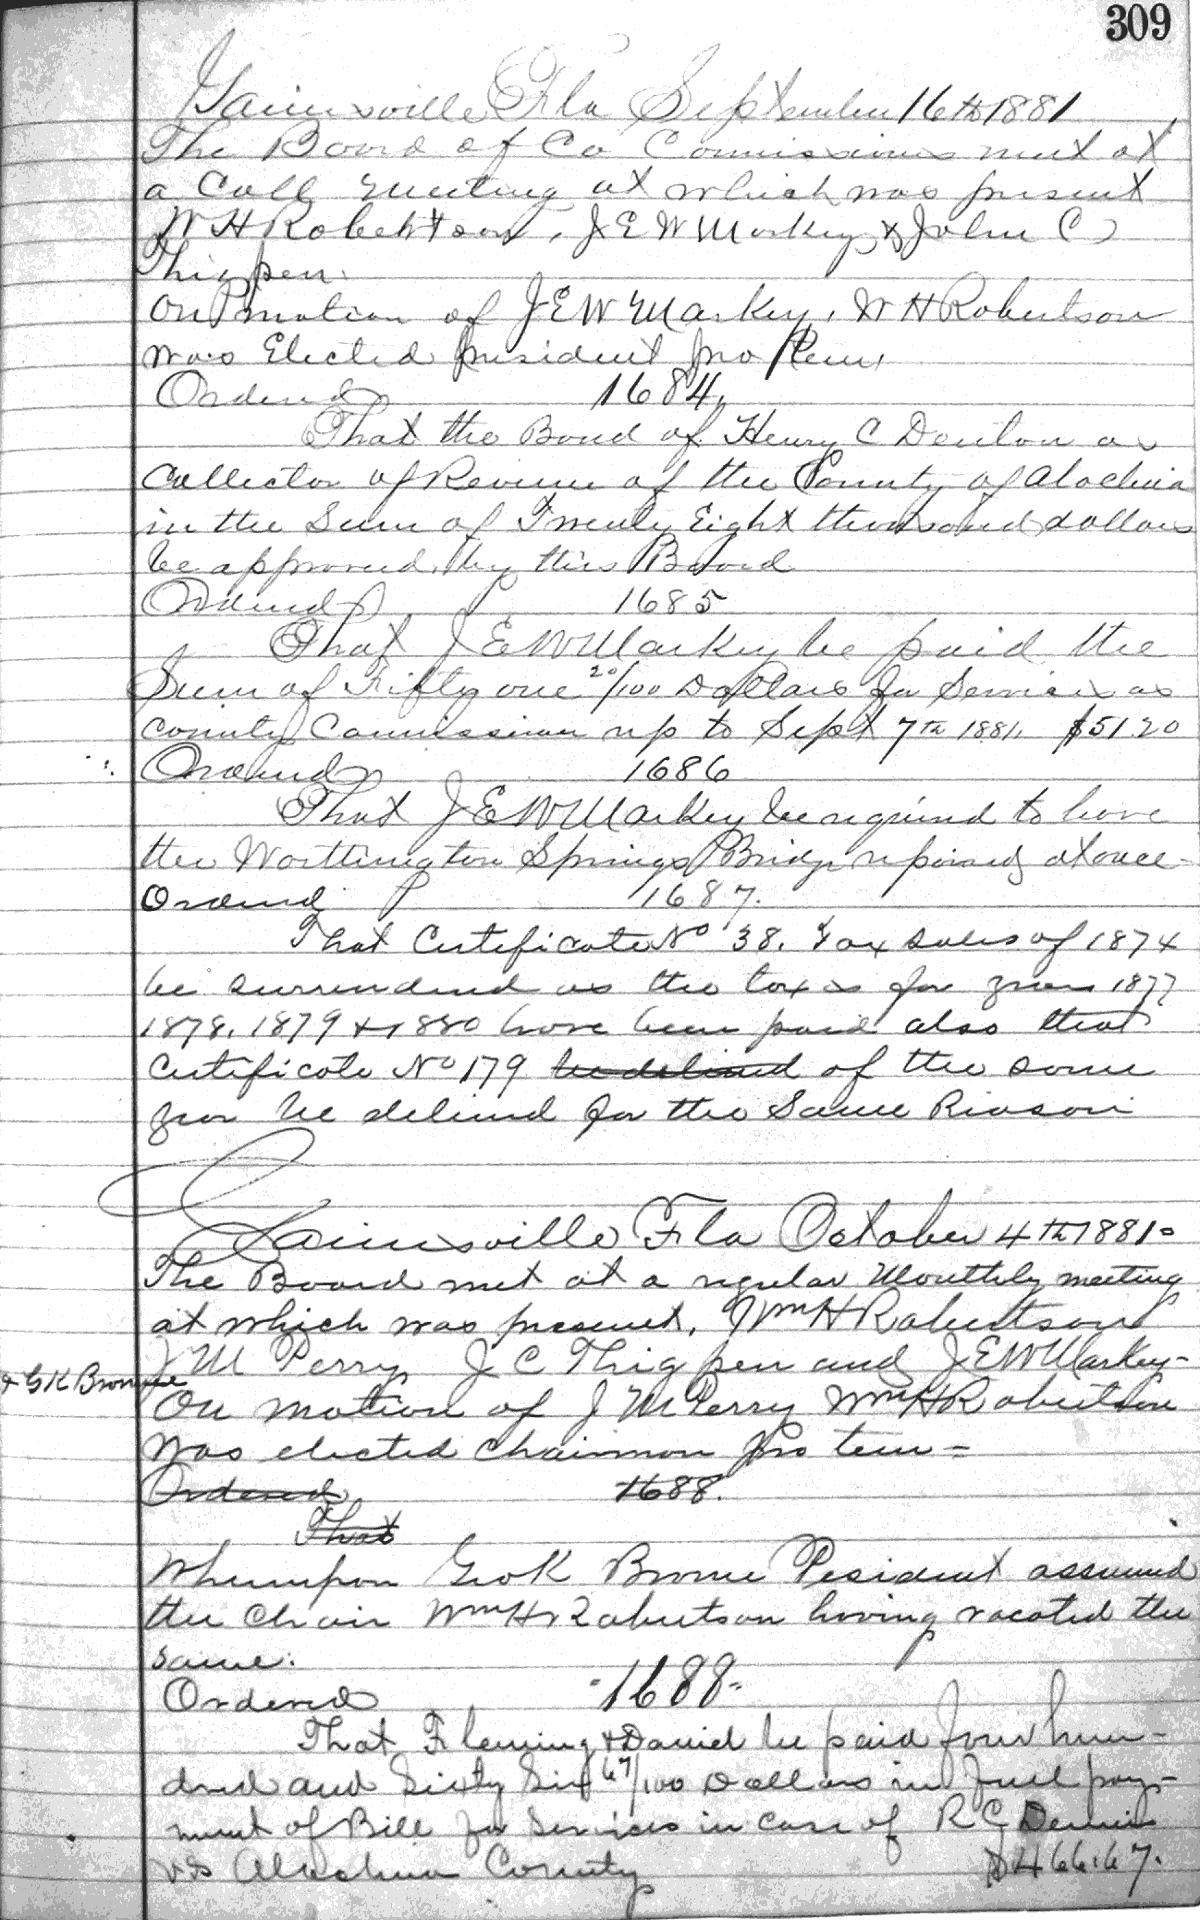 309
Gainesville Fla September 16th 1881
The Board of Co Commissioners met at
a Call meeting at which was present
W H Robertson, J E W Markey & John C
Thigpen.
On motion of J E W Markey, W H Robertson
was Elected president pro tem,
Ordered 1684.
That the Bond of Henry C Denton as
Collector of Revenue of the County of Alachua
in the Sum of Twenty Eight thousand dollars
be approved by this Board
Ordered 1685
That J E W Markey be paid the
Sum of Fifty one 20/100 Dollars for Services as
County Commissioner up to Sept 7th 1881. $51.20
Ordered 1686
That J E W Markey be required to have
the Worthington Springs Bridge repaired at once
Ordered 1687.
That Certificate No 38. Tax Sales of 1874
be surrendered as the taxes for years 1877
1878, 1879 & 1880 have been paid also that
Certificate No 179 be delived of the same
year be delived for the Same Reason
Gainesville Fla October 4th 1881=
The Board met at a regular Monthly meeting
at which was present, Wm H Robertson
J M Perry J C Thigpen and J E W Markey-
& G K Browne
On motion of J M Perry Wm H Robertson
was elected chairman pro tem=
Ordered 1688.
That
Whereupon Geo K Browne President assumed
the Chair Wm H Robertson having vacated the
same.
Ordered 1688.
That Fleming & Daniel be paid four hun-
dred and Sixty Six 67/100 Dollars in full pay-
ment of Bill for Services in case of R C
vs Alachua County $466.67.